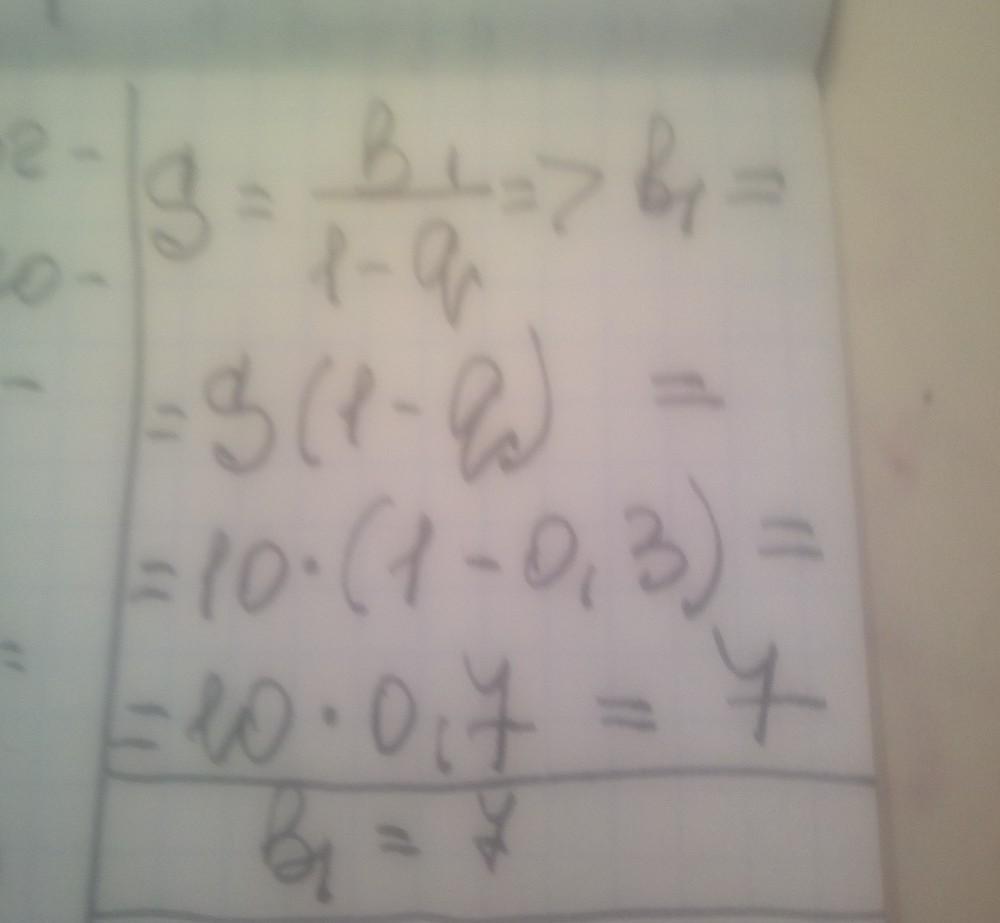 S = b₁/(1-q) => b₁ =
= S(1-q) =
= 10·(1-0,3) =
= 10·0,7 = 7
b₁ = 7